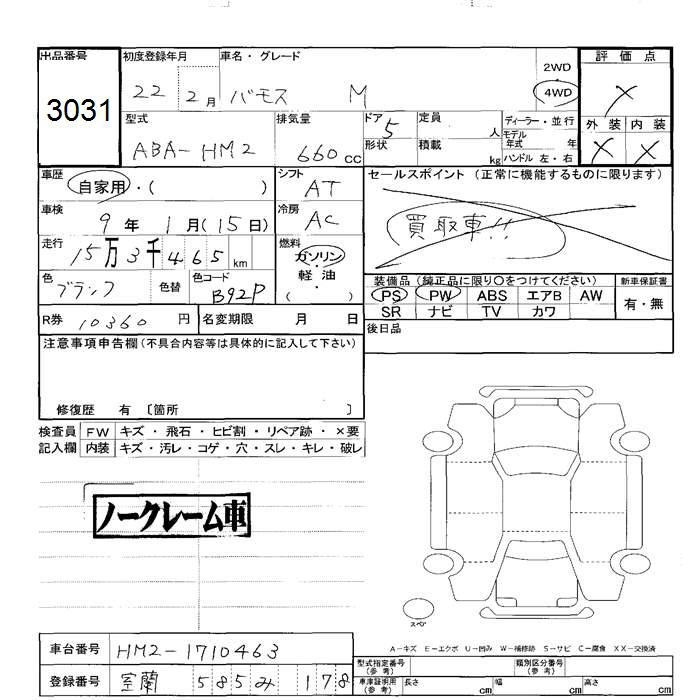 出品番号 初度登録年月 車名・グレード 2WD 評価点
3031 22 2月 バモス M 4WD ×
型式 排気量 ドア 定員 ディーラー・並行 外装 内装
ABA-HM2 660cc 5 人 モデル年式 年 × ×
形状 積載 kg ハンドル 左・右
車歴 自家用・( ) シフト AT セールスポイント (正常に機能するものに限ります)
車検 9年 1月(15日) 冷房 AC 買取車!!
走行 15万3千465km 燃料 ガソリン・軽油( )
色 ブラック 色替 色コード B92P
装備品 (純正品に限り○をつけてください) 新車保証書
PS PW ABS エアB AW 有・無
SR ナビ TV カワ
R券 10360円 名変期限 月 日
後日品
注意事項申告欄(不具合内容等は具体的に記入して下さい)
修復歴 有 〔箇所 〕
検査員 FW キズ・飛石・ヒビ割・リペア跡・×要
記入欄 内装 キズ・汚レ・コゲ・穴・スレ・キレ・破レ
ノークレーム車
スペア
A-キズ E-エクボ U-凹み W-補修跡 S-サビ C-腐食 XX-交換済
車台番号 HM2-1710463
型式指定番号(参考) 類別区分番号(参考)
登録番号 室蘭 585み 178
車庫証明用(参考) 長さ cm 幅 cm 高さ cm